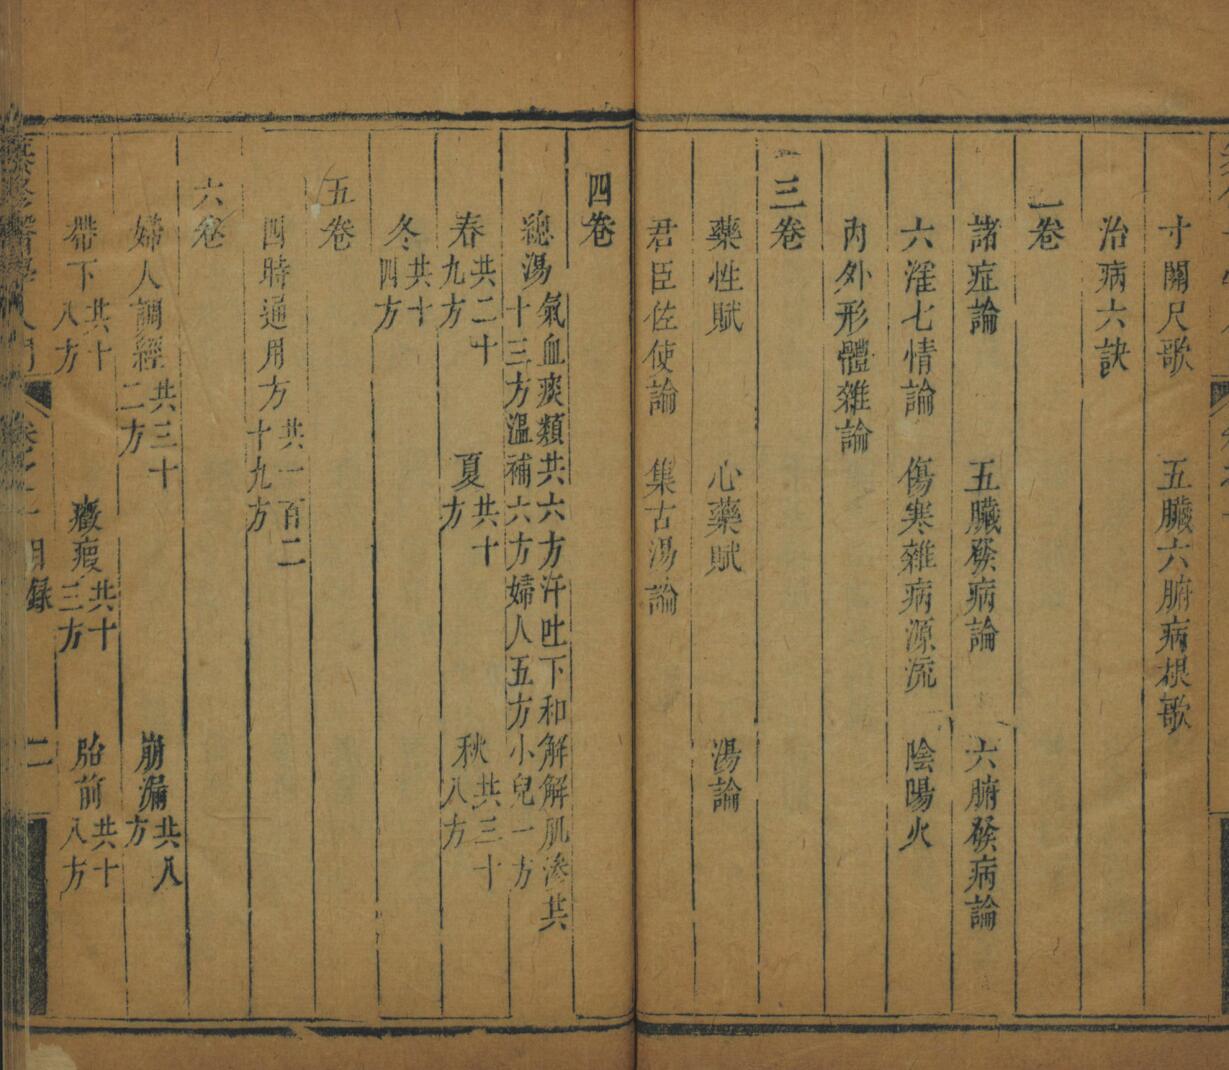 寸關尺歌　五臟六腑病根歌
治病六訣
二卷
諸症論　五臟候病論　六腑候病論
六淫七情論　傷寒雜病源流　陰陽火
內外形體雜論
三卷
藥性賦　心藥賦　湯論
君臣佐使論　集古湯論
四卷
總湯氣血痰類共六方汗吐下和解解肌滲共十三方溫補六方婦人五方小兒一方
春共二十九方　夏共十方　秋共三十八方
冬共十四方
五卷
四時通用方共一百二十九方
六卷
婦人調經共三十二方　崩漏共八方
帶下共十八方　癥瘕共十三方　胎前共十八方
醫學入門　卷之一　目錄　二